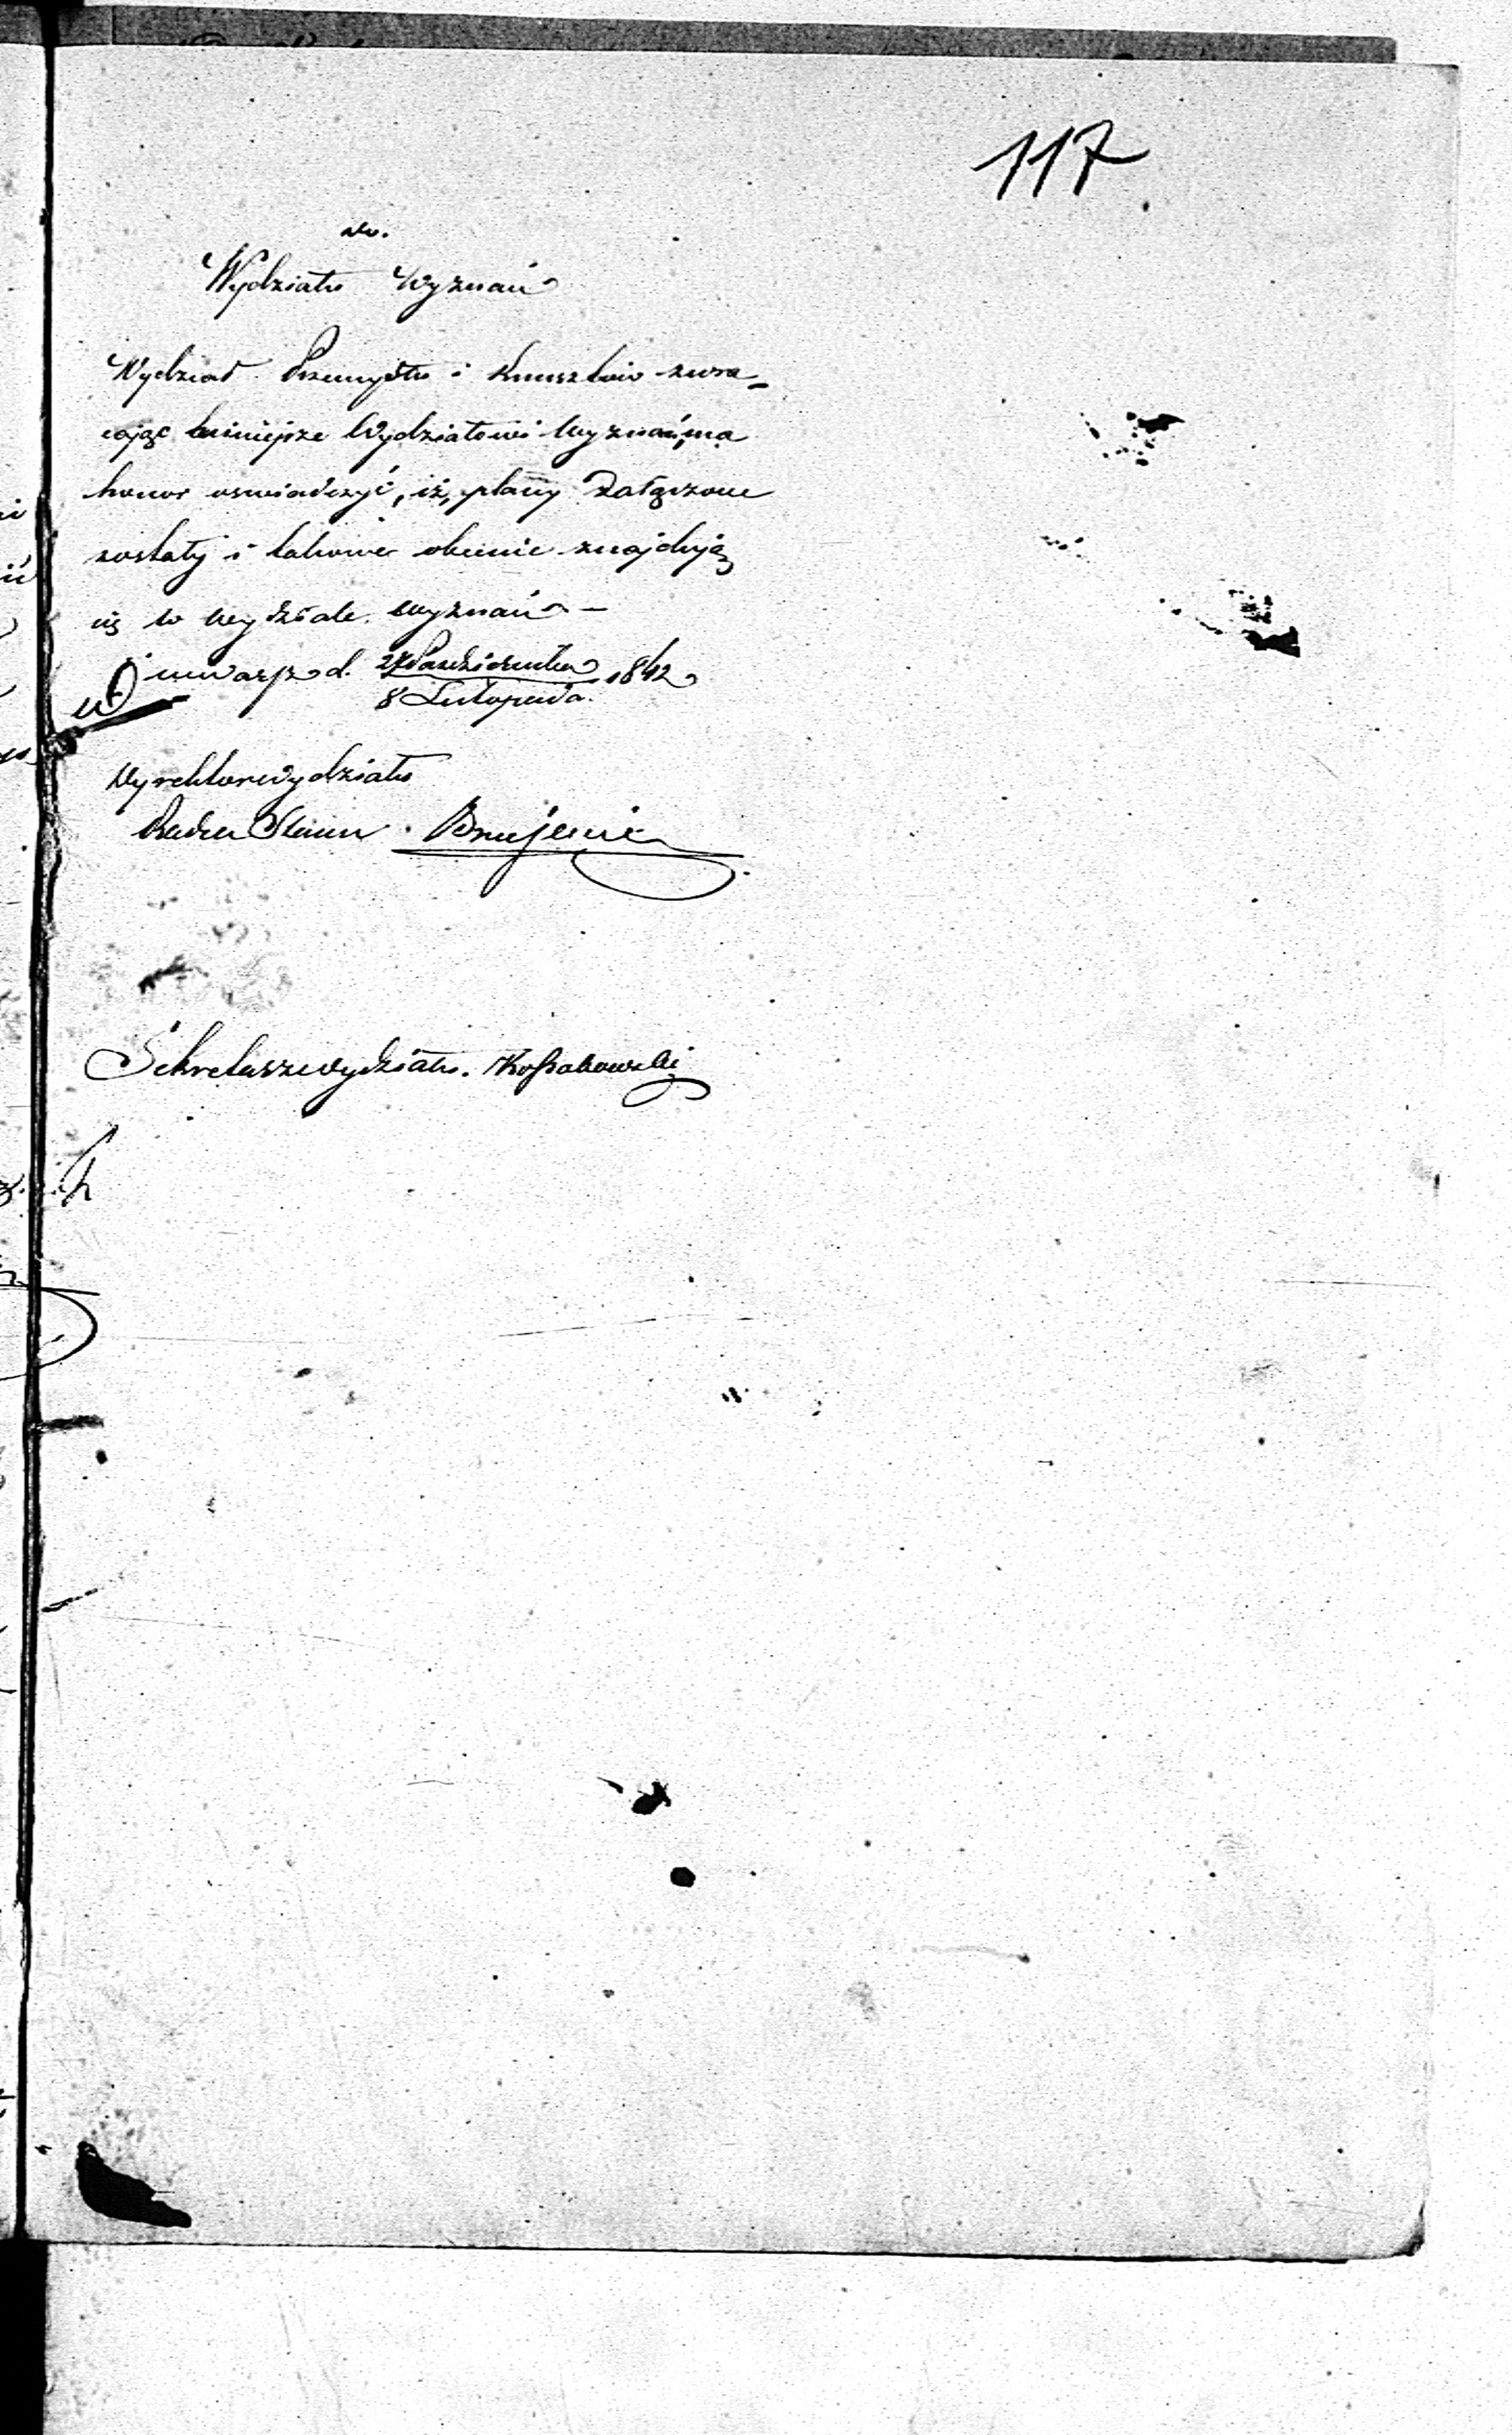 117
do.
Wydziału Wyznań
Wydział Przemysłu i Kunsztów zwra-
cając niniejsze Wydziałowi Wyznań, ma
honor oświadczyć, iż plany załączone
zostały i takowe obecnie znajdują
się w wydziale wyznań –
w Warsz d. 27 Października 1842
8 Listopada
Dyrektor Wydziału
Radca Stanu
Sekretarz wydziału. Kossakowski